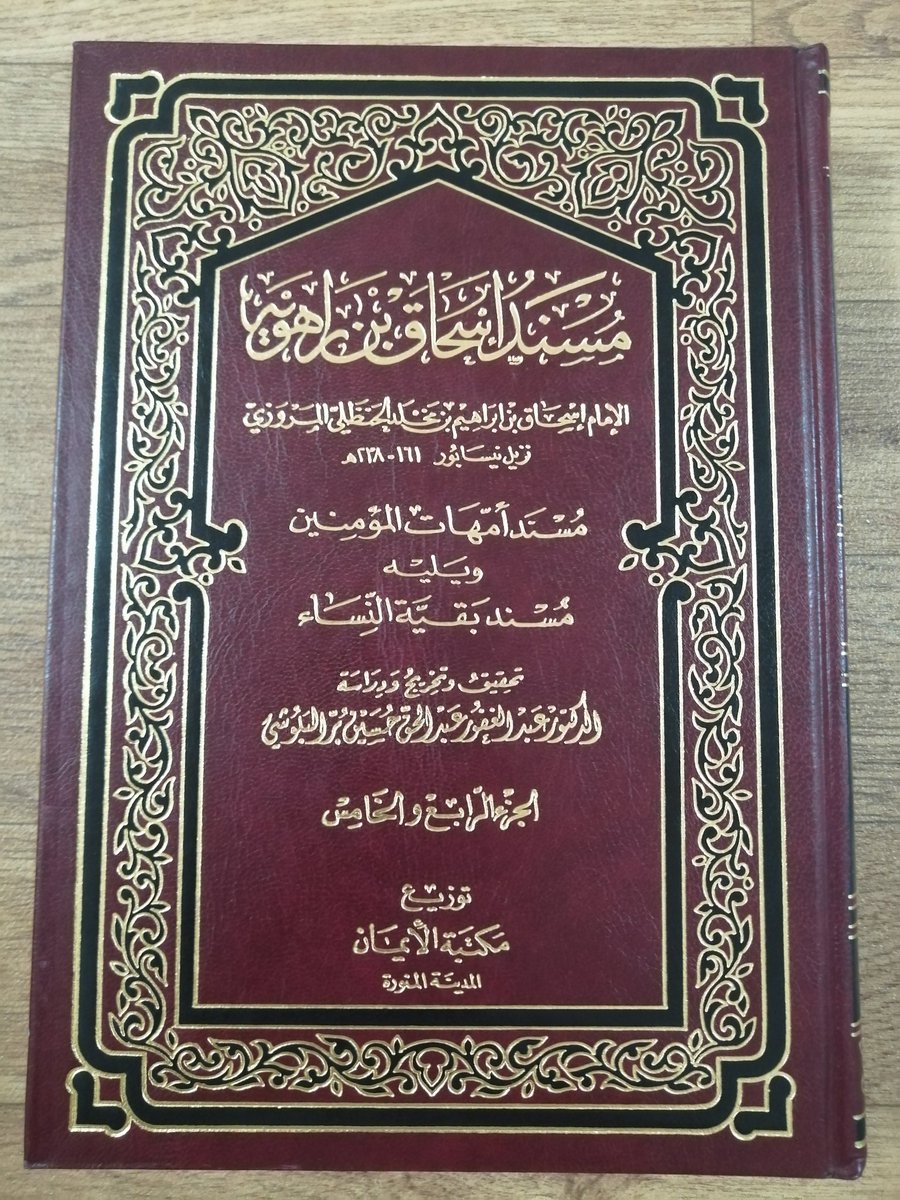 مُسْنَدُ إِسْحَاق بْن رَاهَوَيْه
الإمام إسْحَاق بن ابرَاهيم بن مَخلَد الحَنظَلي المَروَزي
نزيل نيسَابور ١٦١-٢٣٨هـ
مُسْنَد أمّهَات المؤمِنين
وَيَليه
مُسْند بَقيَّة النِّسَاء
تحقيق وتخريج وَدرَاسَة
الدكتور عَبد الغفور عَبد الحق حُسَين بُر البَلوشي
الجزء الرَّابع وَالخَامِس
توزيع
مَكتبَة الأيمَان
المدينَة المنورة